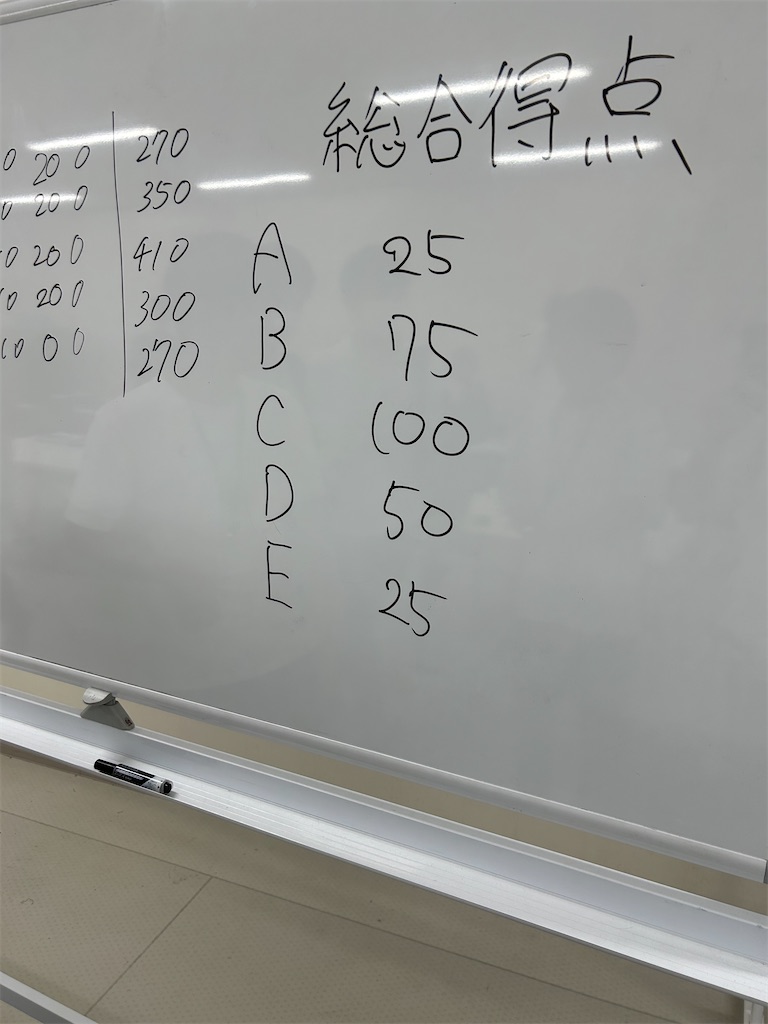 総合得点
0 20 0 270
0 20 0 350
0 20 0 410
0 20 0 300
10 0 0 270
A 25
B 75
C 100
D 50
E 25